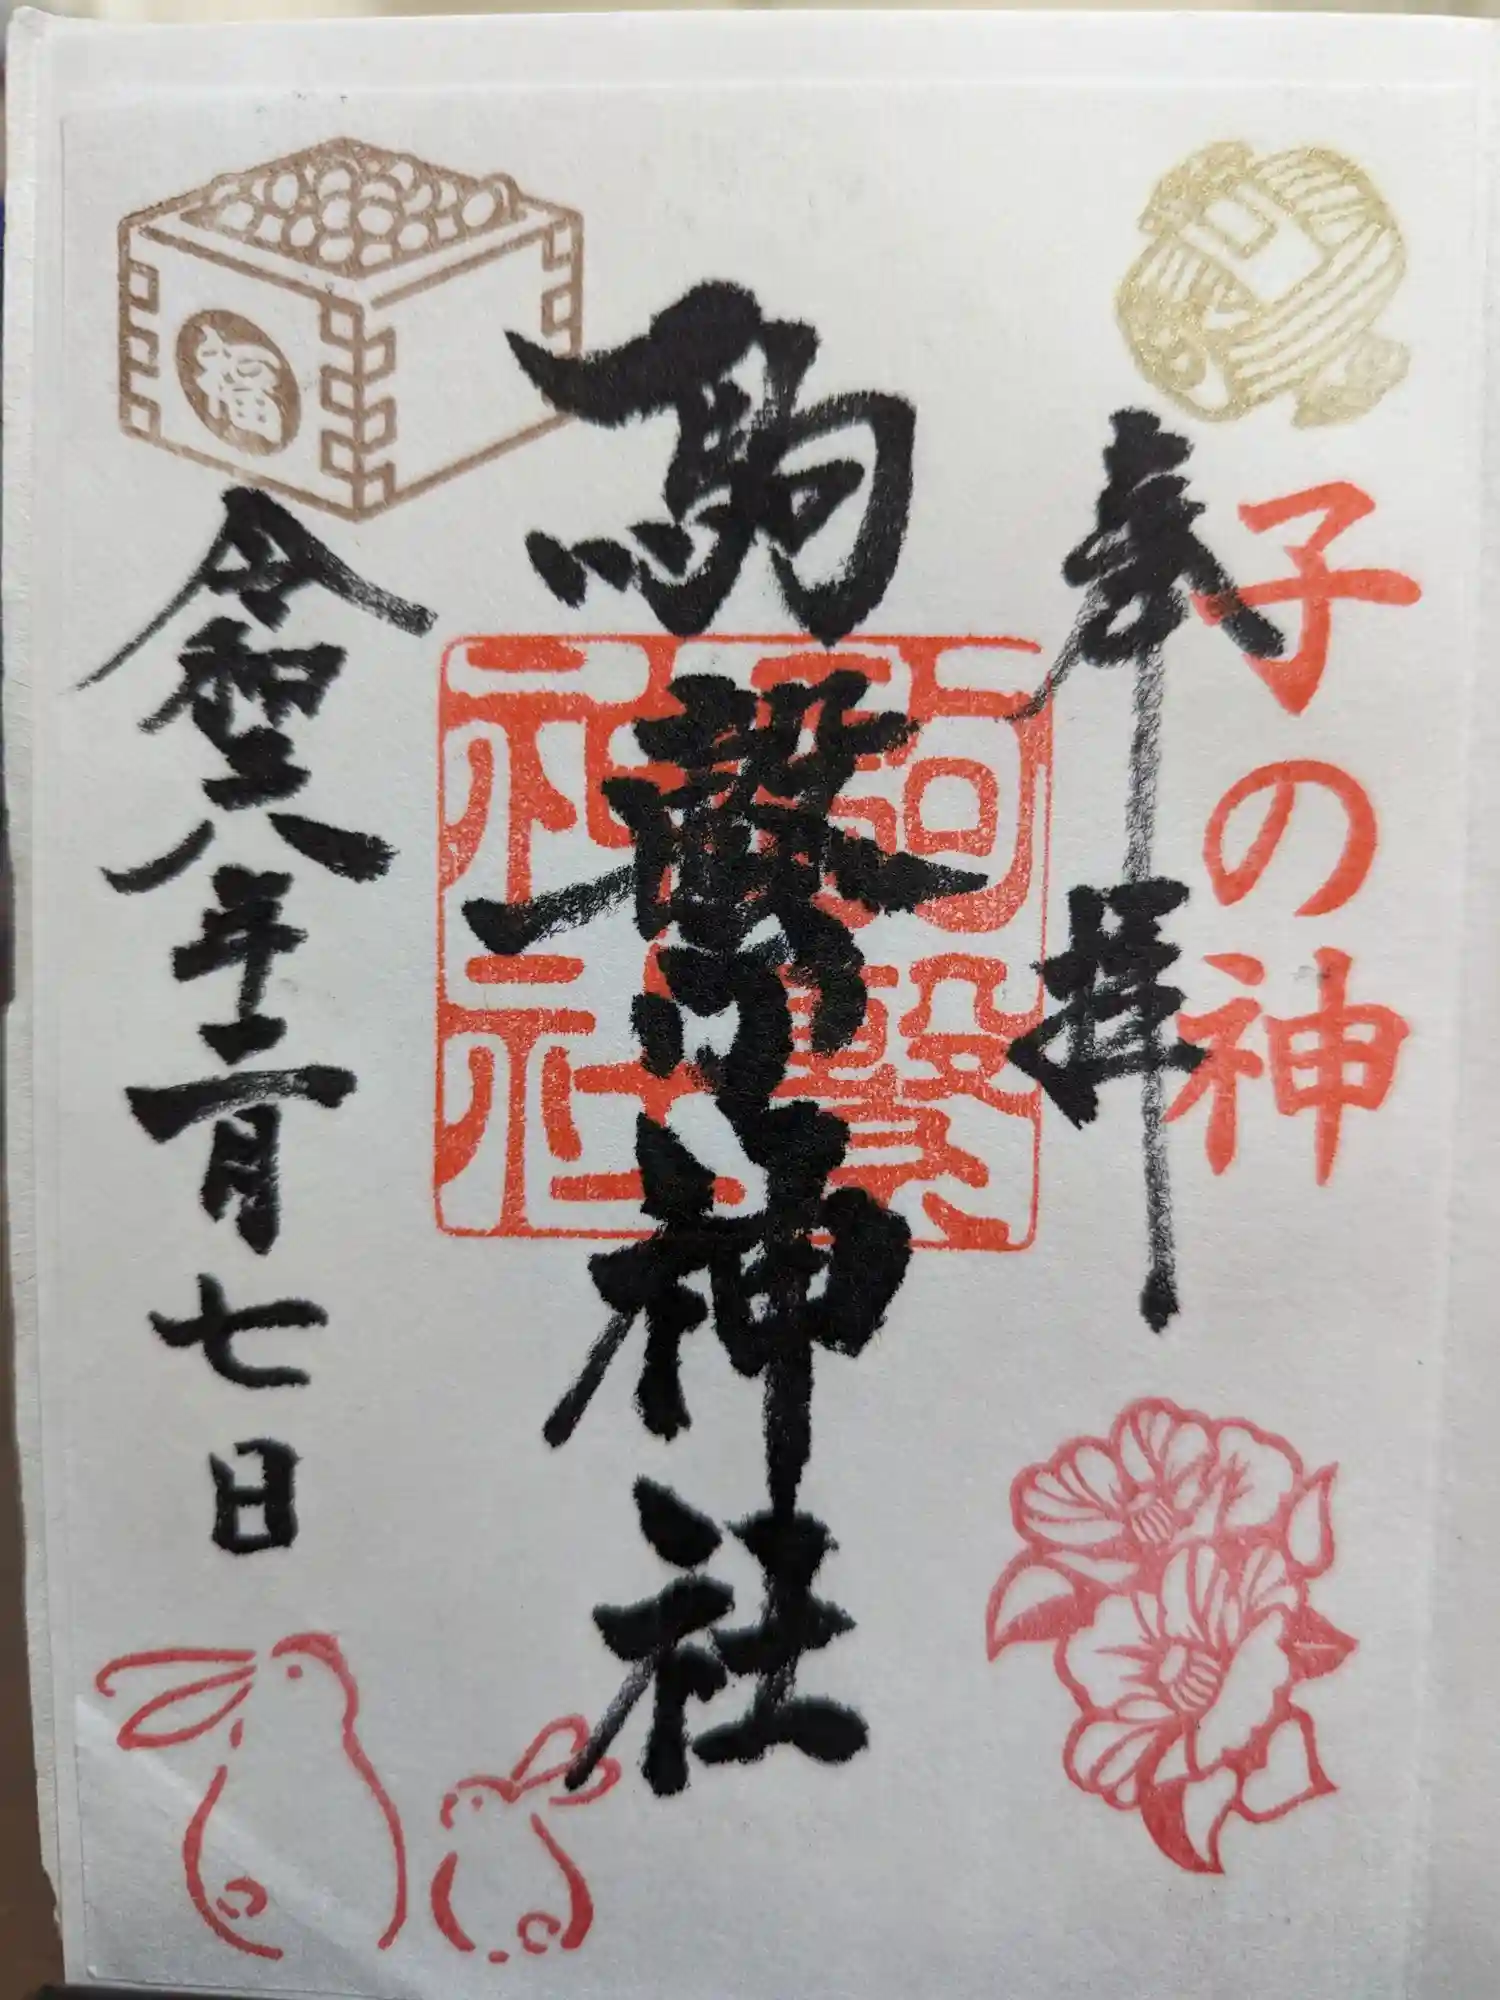 子の神
奉拝
駒繋神社
駒繋神社
福
令和八年二月七日